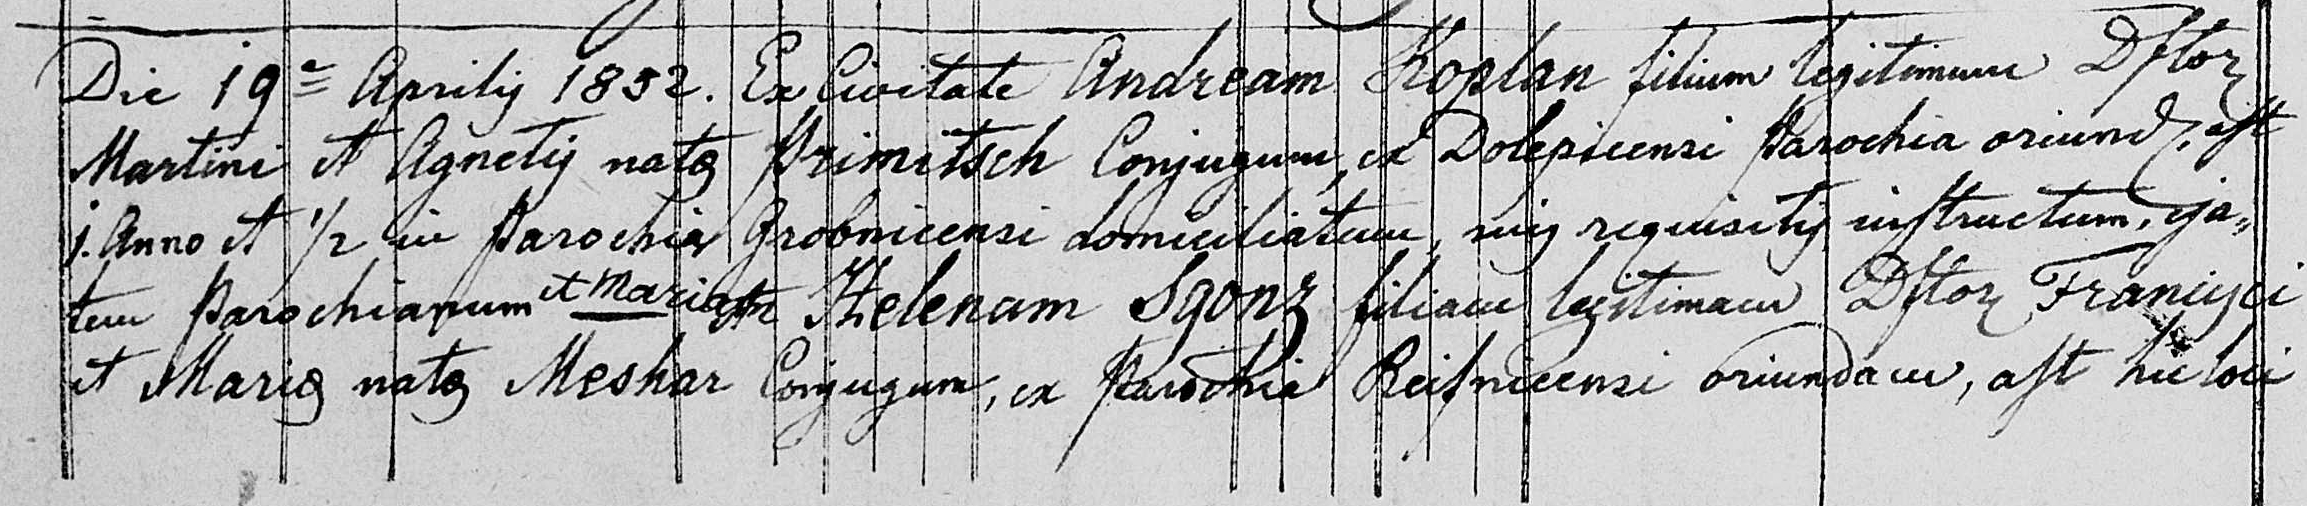 Die 19ª Aprilis 1852. Ex Civitate Andream Koplan filium legitimum Dftor
Martini et Agnetis natæ Primitsch Conjugum, ex Dolepicensi Parochia oriund. aft
j. Anno et 1/2 in Parochia Grobnicensi domiciliatum, requisitis instructum, eja„
tem Parochianum et Mariam Helenam Sgonz filiam legitimam Dftor Francisci
et Mariæ natæ Meshar Conjugum, ex Parochia Reifnicensi oriundam, aft hic loci